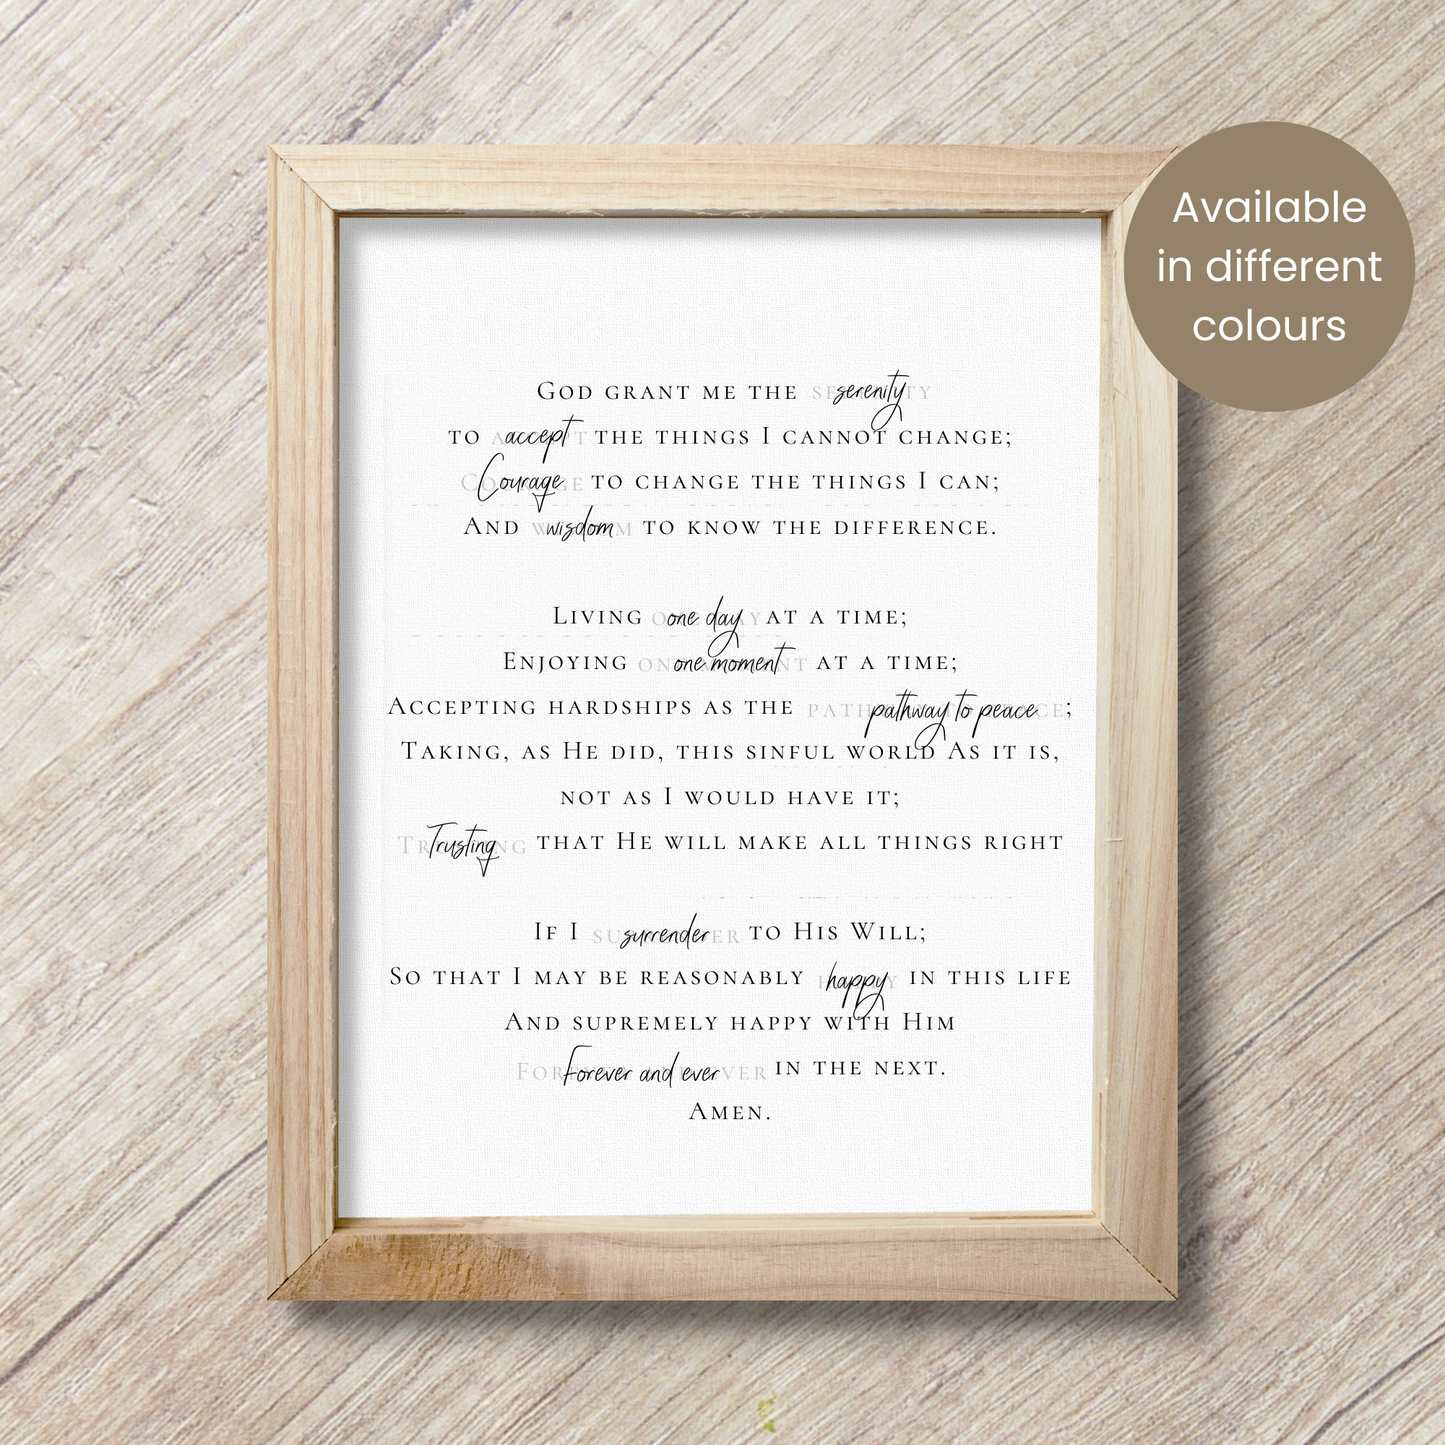 God grant me the serenity
to accept the things I cannot change;
Courage to change the things I can;
And wisdom to know the difference.
Living one day at a time;
Enjoying one moment at a time;
Accepting hardships as the pathway to peace;
Taking, as He did, this sinful world As it is,
not as I would have it;
Trusting that He will make all things right
If I surrender to His Will;
So that I may be reasonably happy in this life
And supremely happy with Him
Forever and ever in the next.
Amen.
Available
in different
colours